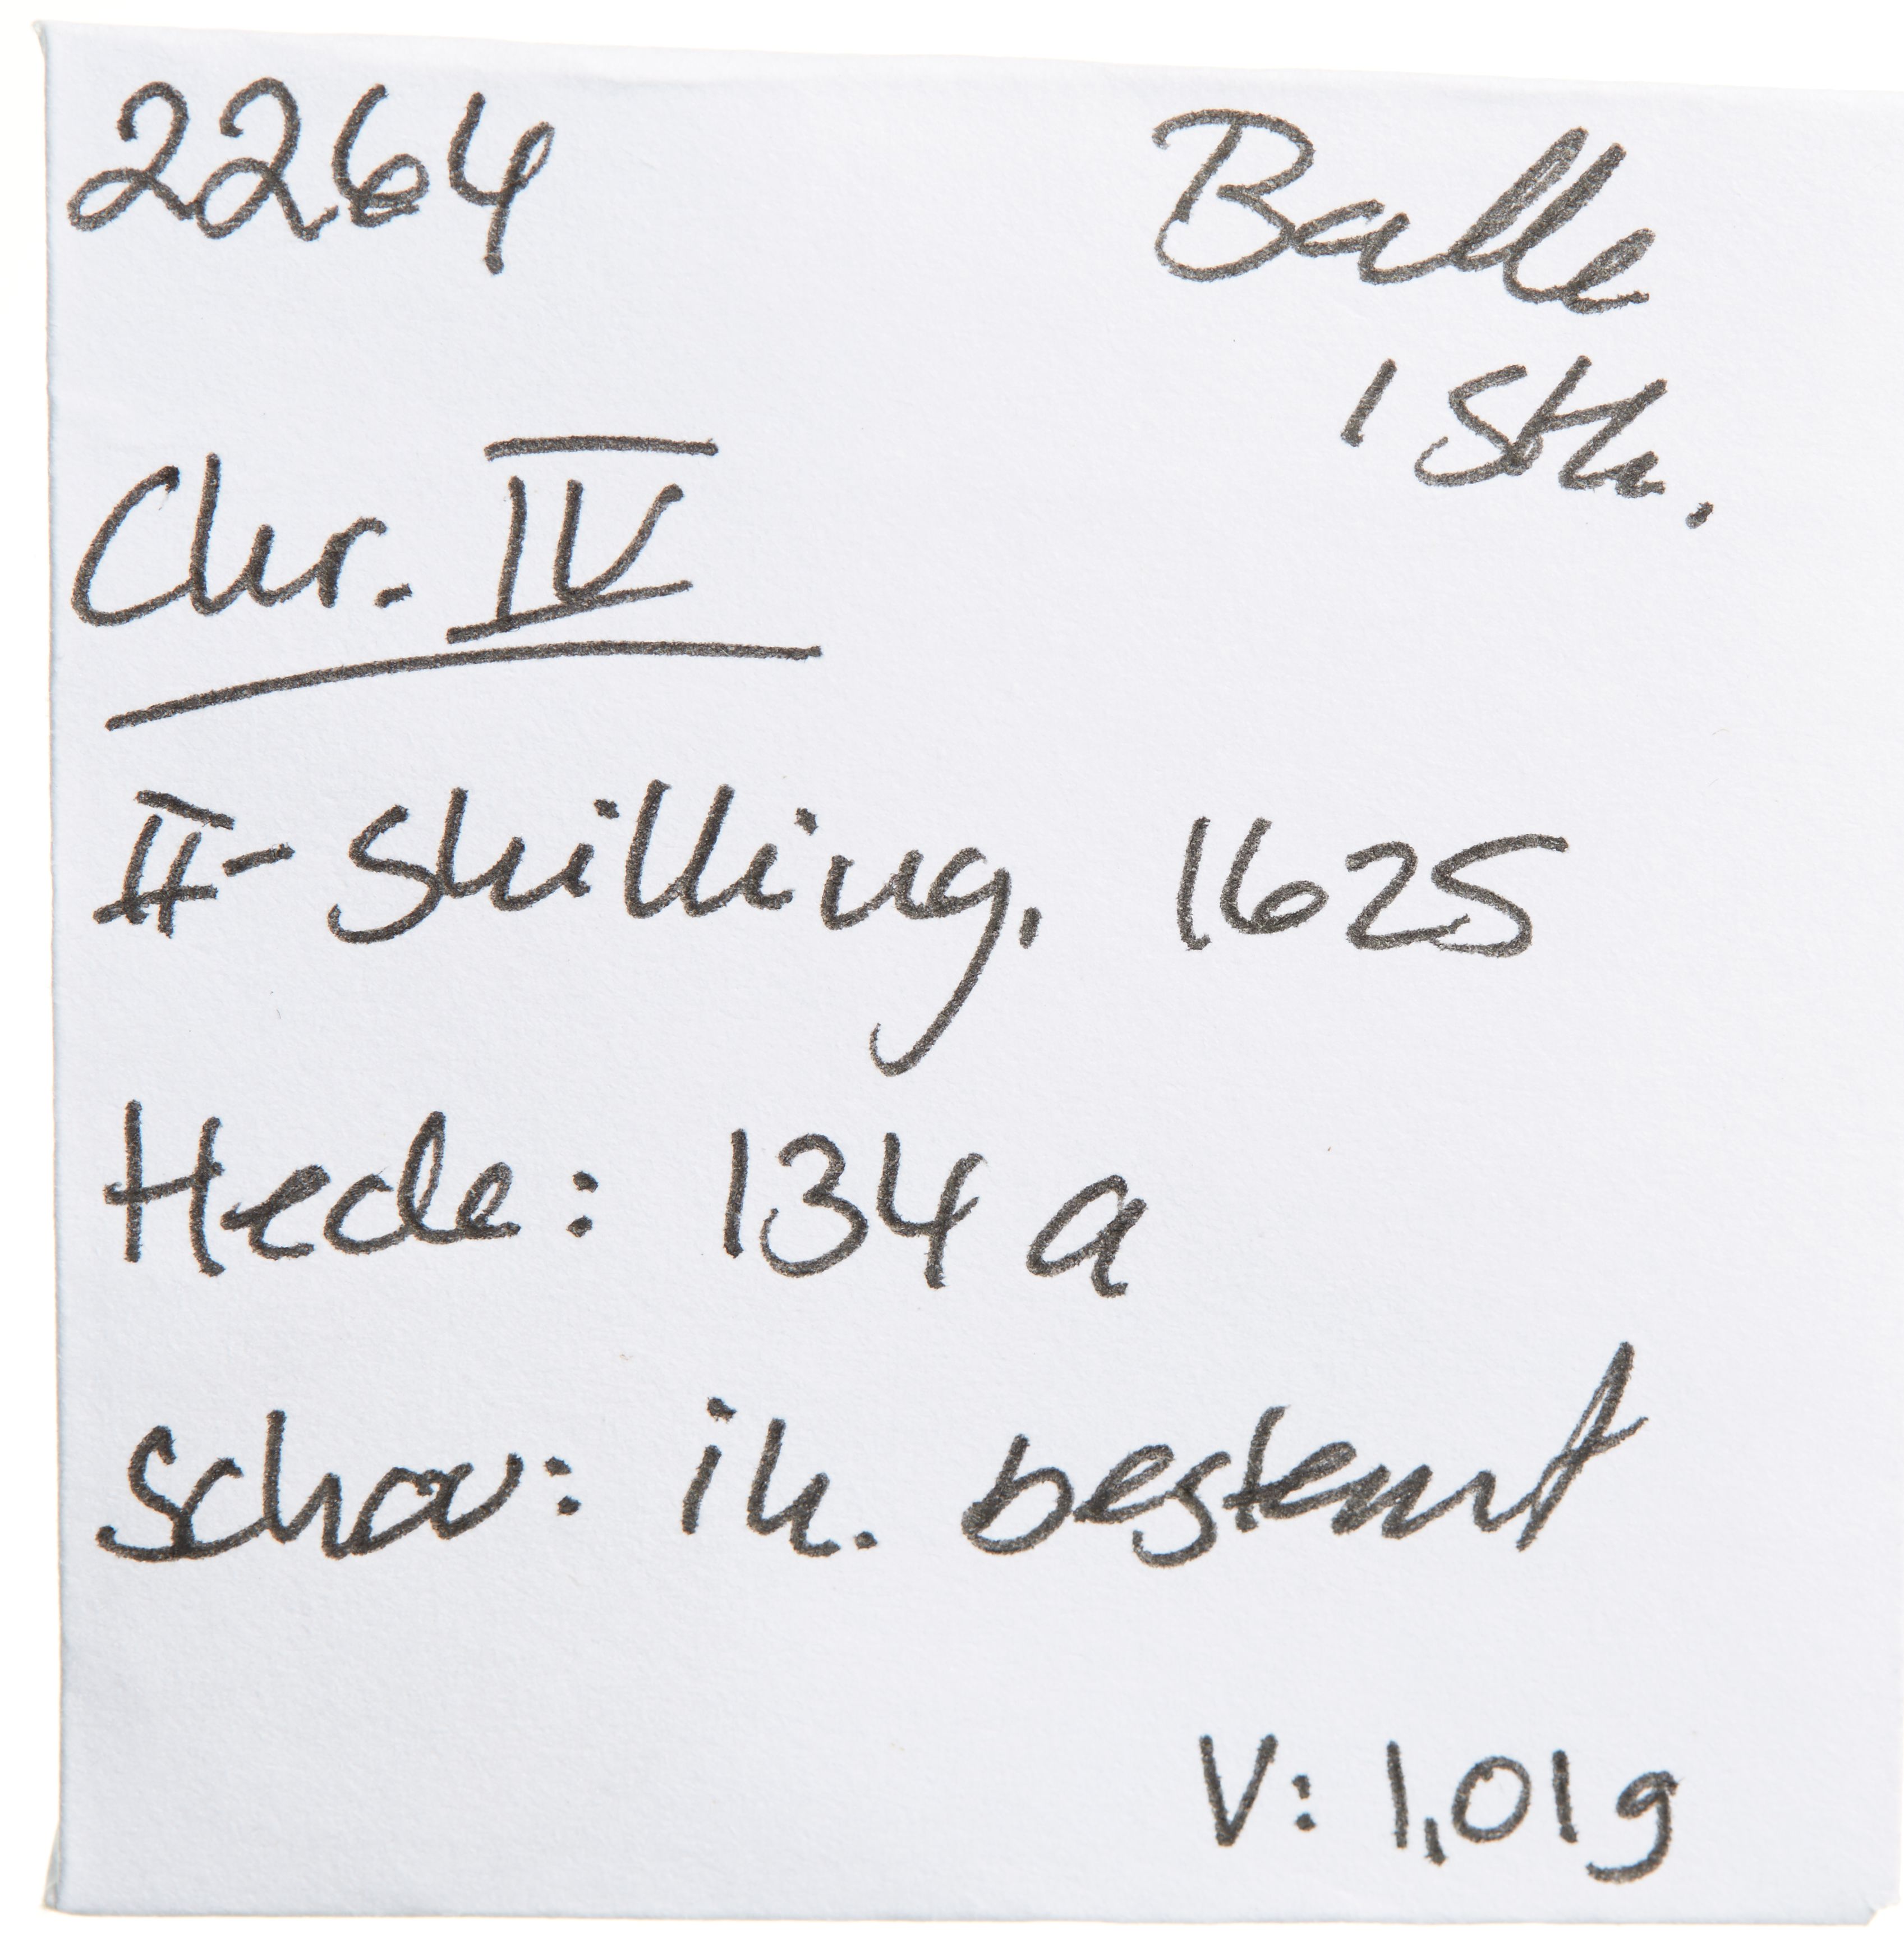 2264 Balle
1 Stk.
Chr. IV
II-Skilling, 1625
Hede: 134 a
Schou: ik. bestemt
V: 1,01g